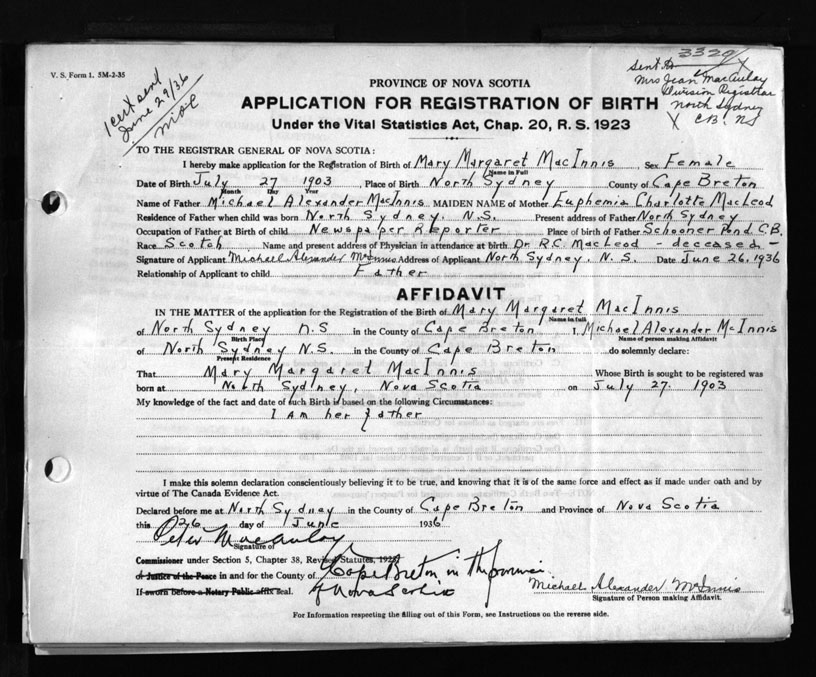 3329
V. S. Form 1. 5M-2-35
1 cert sent
June 29/36
Sent to
Mrs Jean MacAulay
Division Registrar
North Sydney
X C.B. NS
PROVINCE OF NOVA SCOTIA
APPLICATION FOR REGISTRATION OF BIRTH
Under the Vital Statistics Act, Chap. 20, R. S. 1923
TO THE REGISTRAR GENERAL OF NOVA SCOTIA:
I hereby make application for the Registration of Birth of Mary Margaret MacInnis Sex Female
Name in Full
Date of Birth July 27 1903, Place of Birth North Sydney County of Cape Breton
Month Day Year
Name of Father Michael Alexander MacInnis MAIDEN NAME of Mother Euphemia Charlotte MacLeod
Residence of Father when child was born North Sydney, N.S. Present address of Father North Sydney
Occupation of Father at Birth of child Newspaper Reporter Place of birth of Father Schooner Pond C.B.
Race Scotch, Name and present address of Physician in attendance at birth Dr. R.C. MacLeod - deceased -
Signature of Applicant Michael Alexander McInnis Address of Applicant North Sydney, N. S. Date June 26, 1936
Relationship of Applicant to child Father
AFFIDAVIT
IN THE MATTER of the application for the Registration of the Birth of Mary Margaret MacInnis
Name in full
of North Sydney N.S in the County of Cape Breton I, Michael Alexander McInnis
Birth Place Name of person making Affidavit
of North Sydney N.S. in the County of Cape Breton do solemnly declare:
Present Residence
That Mary Margaret MacInnis Whose Birth is sought to be registered was
born at North Sydney, Nova Scotia on July 27 1903
My knowledge of the fact and date of such Birth is based on the following Circumstances:
I Am her father
I make this solemn declaration conscientiously believing it to be true, and knowing that it is of the same force and effect as if made under oath and by
virtue of The Canada Evidence Act.
Declared before me at North Sydney in the County of Cape Breton and Province of Nova Scotia
this 26 day of June 1936
Peter Macaulay
Signature of
Commissioner under Section 5, Chapter 38, Revised Statutes, 1923
or Justice of the Peace in and for the County of Cape Breton in the province
of Nova Scotia
If sworn before a Notary Public affix seal.
Michael Alexander McInnis
Signature of Person making Affidavit.
For Information respecting the filling out of this Form, see Instructions on the reverse side.